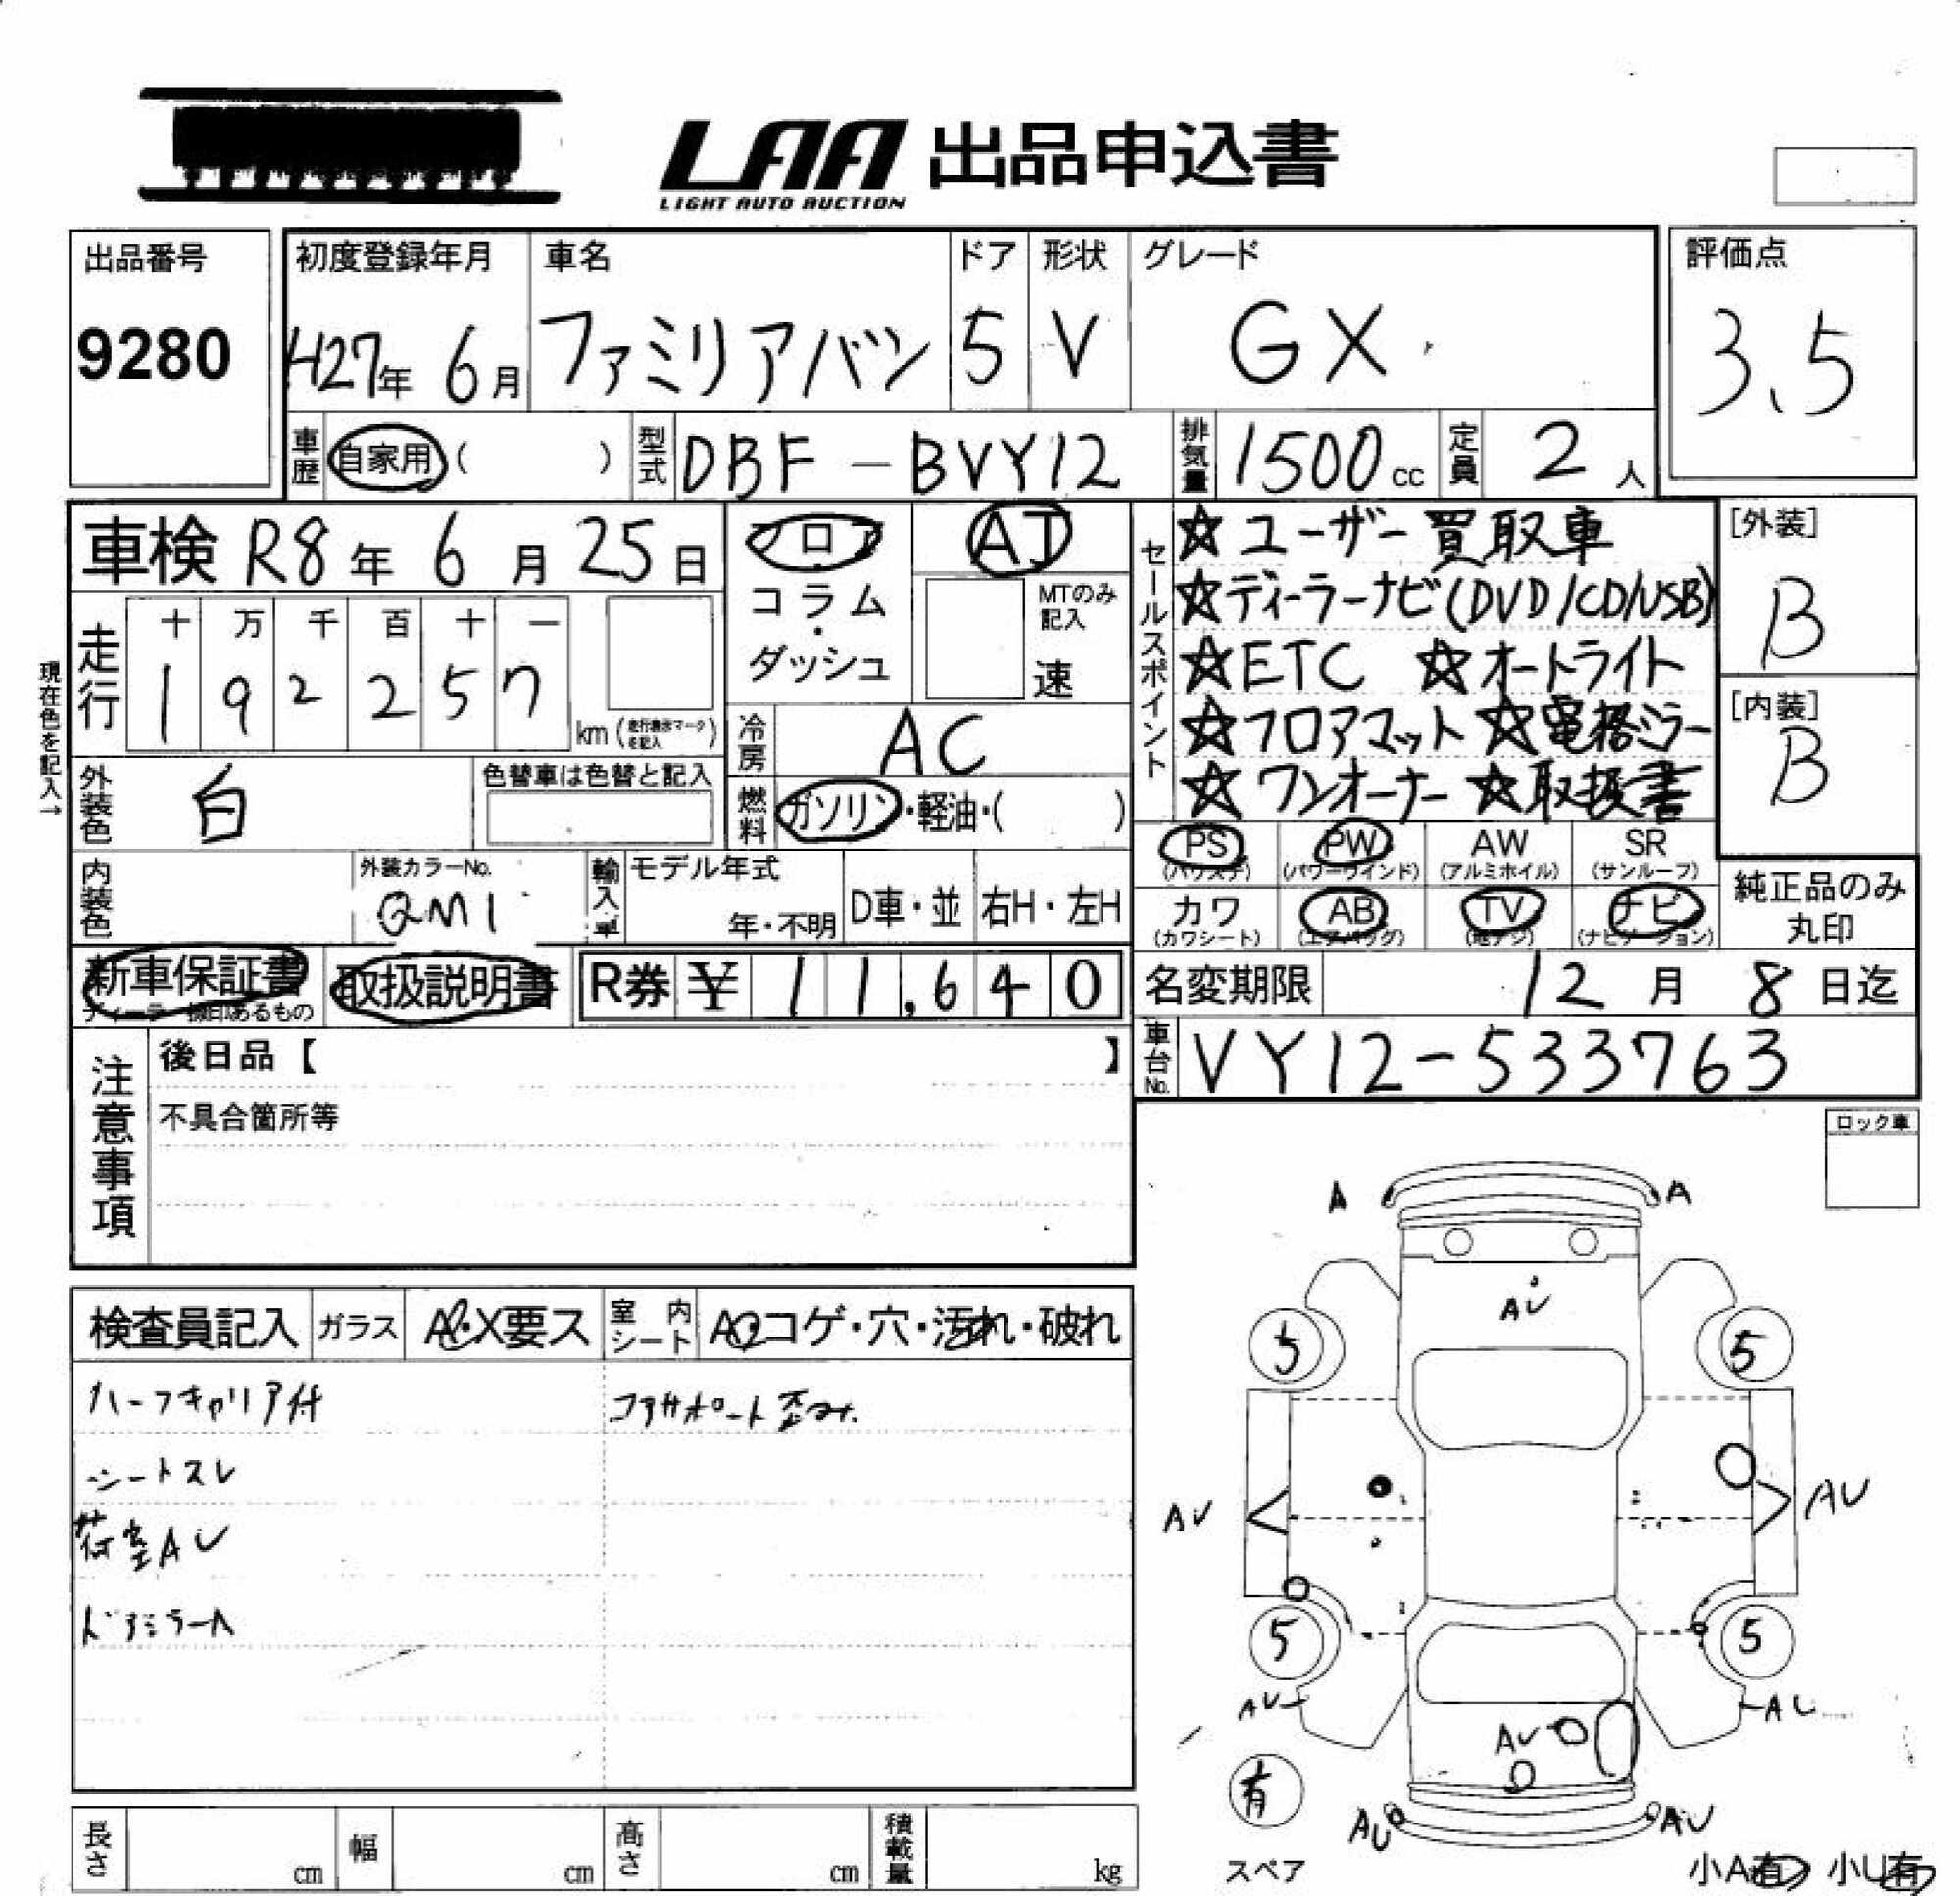 LAA 出品申込書
LIGHT AUTO AUCTION
出品番号 9280
初度登録年月 H27年 6月
車名 ファミリアバン
ドア 5
形状 V
グレード GX
評価点 3.5
車歴 自家用 ( )
型式 DBF-BVY12
排気量 1500 cc
定員 2 人
車検 R8年 6月 25日
フロア
コラム
・
ダッシュ
MTのみ記入
速
走行 十 万 千 百 十 一
1 9 2 2 5 7
km (走行表示マークを記入)
現在色を記入→
冷房 AC
外装色 白
色替車は色替と記入
燃料 ガソリン・軽油・( )
内装色
外装カラーNo. QM1
輸入車 モデル年式 年・不明
D車・並
右H・左H
セールスポイント
☆ユーザー買取車
☆ディーラーナビ(DVD/CD/USB)
☆ETC ☆オートライト
☆フロアマット ☆電格ミラー
☆ワンオーナー ☆取扱書
[外装] B
[内装] B
PS (パワステ) PW (パワーウインド) AW (アルミホイル) SR (サンルーフ)
カワ (カワシート) AB (エアバッグ) TV (地デジ) ナビ (ナビゲーション)
純正品のみ丸印
新車保証書
ディーラー捺印あるもの
取扱説明書
R券 ¥ 11,640
名変期限 12月 8日迄
車台No. VY12-533763
注意事項
後日品【 】
不具合箇所等
ロック車
検査員記入
ガラス A・X要ス
室内シート コゲ・穴・汚れ・破れ
ハーフキャリア付
コアサポート歪み.
シートスレ
荷室AU
ドアミラーA
A A
AU
5 5
AU AU
5 5
AU
AU
有
AU AU
スペア
小A有 小U有
長さ cm
幅 cm
高さ cm
積載量 kg